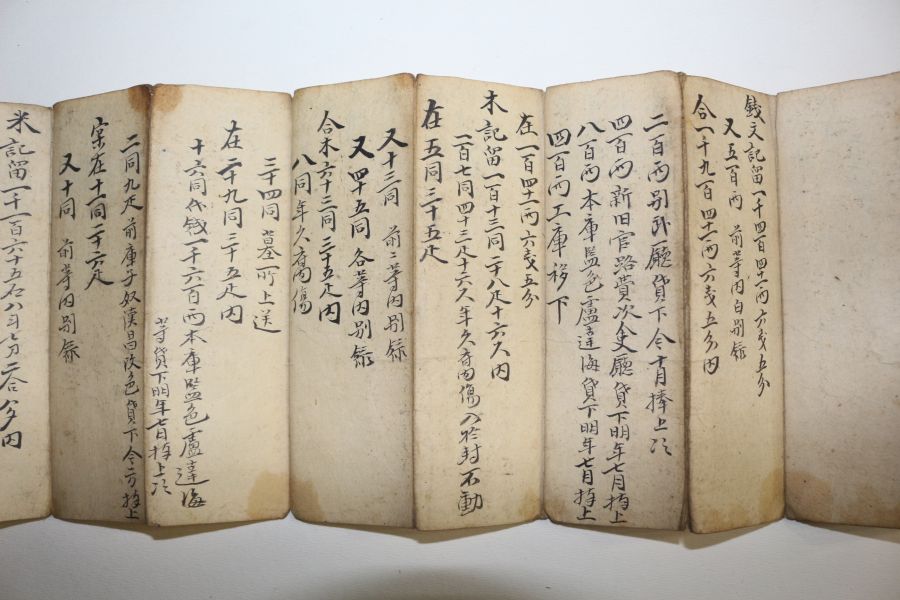 錢文記留一千四百四十一兩六戔五分
又五百兩 前等內白別錄
合一千九百四十一兩六戔五分內
二百兩別砲廳貸下今十月捧上次
四百兩新旧官路費次全吏廳貸下明年七月捧上
八百兩本庫監色盧達海貸下明年七月捧上
四百兩工庫移下
在一百四十一兩六戔五分
木記留一百十三同二十八疋十六尺內
一百七同四十三疋十六尺年久腐傷入於封不動
在五同三十五疋
又十三同 前二等內別錄
又四十五同 各等內別錄
合木六十三同三十五疋內
八同年久腐傷
三十四同墓所上送
在二十九同三十五疋內
十六同代錢一千六百兩本庫監色盧達海
等貸下明年七月捧上次
二同九疋前庫子奴漢昌改色貸下今方捧上
實在十一同二十六疋
又十同 前等內別錄
米記留一千一百六十五石八斗七刀二合八夕內